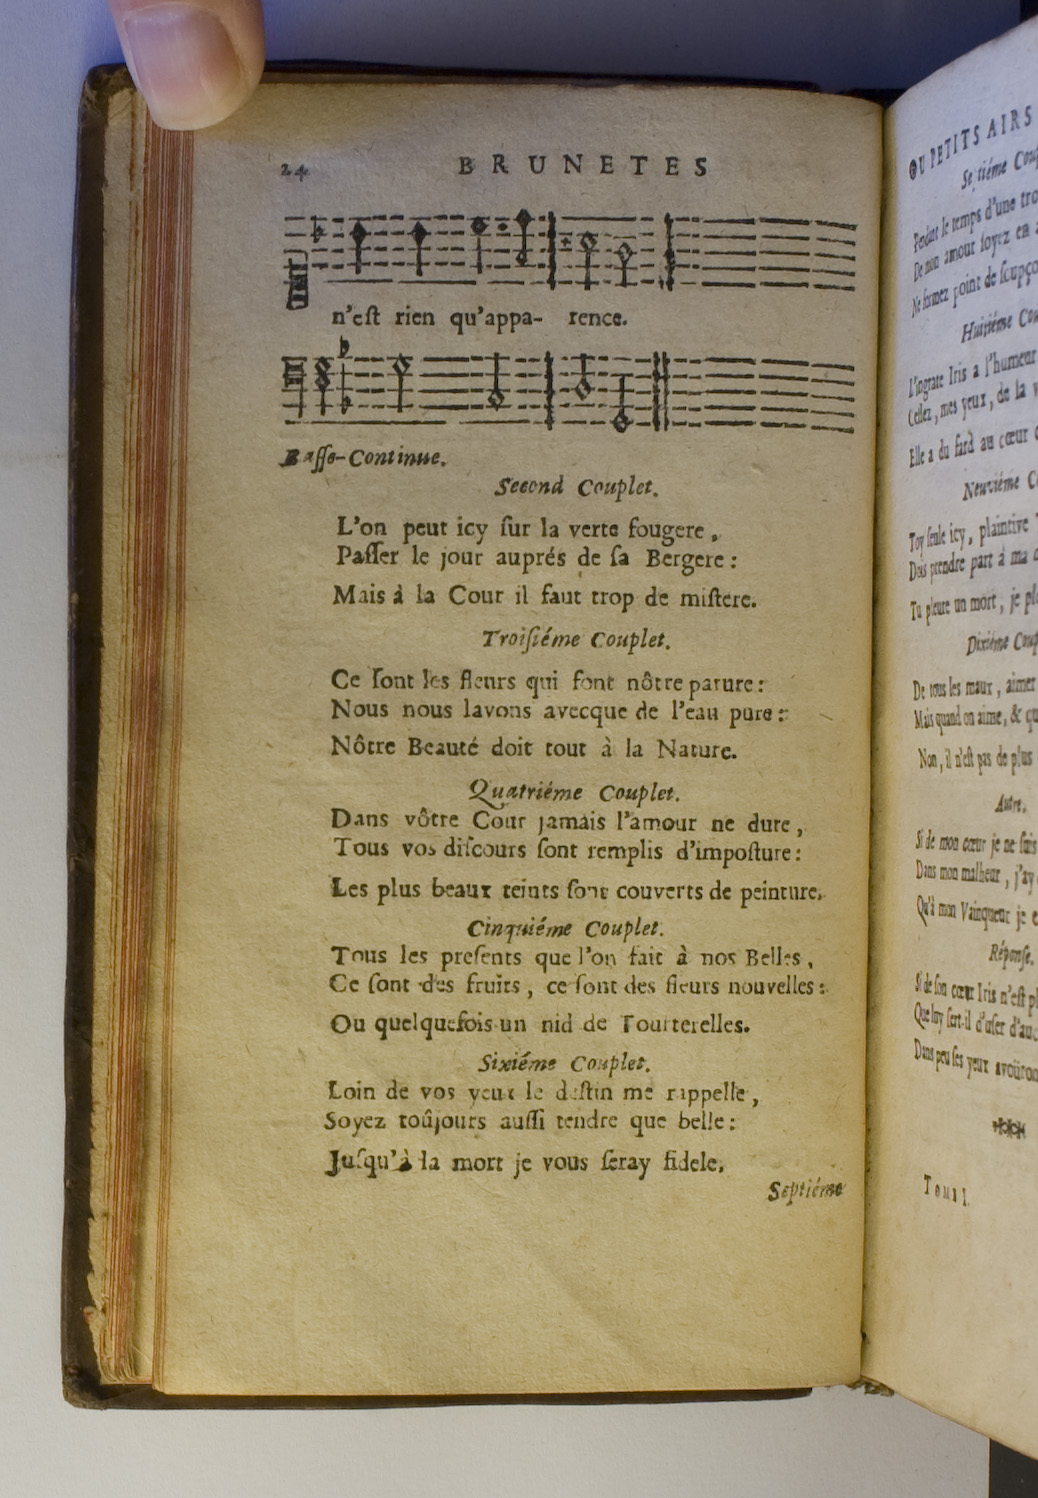 24 BRUNETES
n'est rien qu'appa- rence.
Basse-Continue.
Second Couplet.
L'on peut icy sur la verte fougere,
Passer le jour auprés de sa Bergere :
Mais à la Cour il faut trop de mistere.
Troisiéme Couplet.
Ce sont les fleurs qui font nôtre parure :
Nous nous lavons avecque de l'eau pure :
Nôtre Beauté doit tout à la Nature.
Quatriéme Couplet.
Dans vôtre Cour jamais l'amour ne dure,
Tous vos discours sont remplis d'imposture :
Les plus beaux teints sont couverts de peinture.
Cinquiéme Couplet.
Tous les presents que l'on fait à nos Belles,
Ce sont des fruits, ce sont des fleurs nouvelles :
Ou quelquefois un nid de Tourterelles.
Sixiéme Couplet.
Loin de vos yeux le destin me rappelle,
Soyez toûjours aussi tendre que belle :
Jusqu'à la mort je vous seray fidele.
Septiéme
OU PETITS AIRS
Septiéme
Pendant le temps d'une
De mon amour soyez en
Ne formez point de
Huitiéme
L'ingrate Iris a l'humeur
Cessez, mes yeux, de la
Elle a du fard au cœur
Neuviéme
Toy seule icy, plaintive
Dois prendre part à ma
Tu pleure un mort, je
Dixiéme
De tous les maux, aimer
Mais quand on aime, &
Non, il n'est pas de plus
Autre.
Si de mon cœur je ne suis
Dans mon malheur, j'ay
Qu'à mon Vainqueur je
Réponse.
Si de son cœur Iris n'est
Que luy sert-il d'user
Dans peu ses yeux
Tome I.